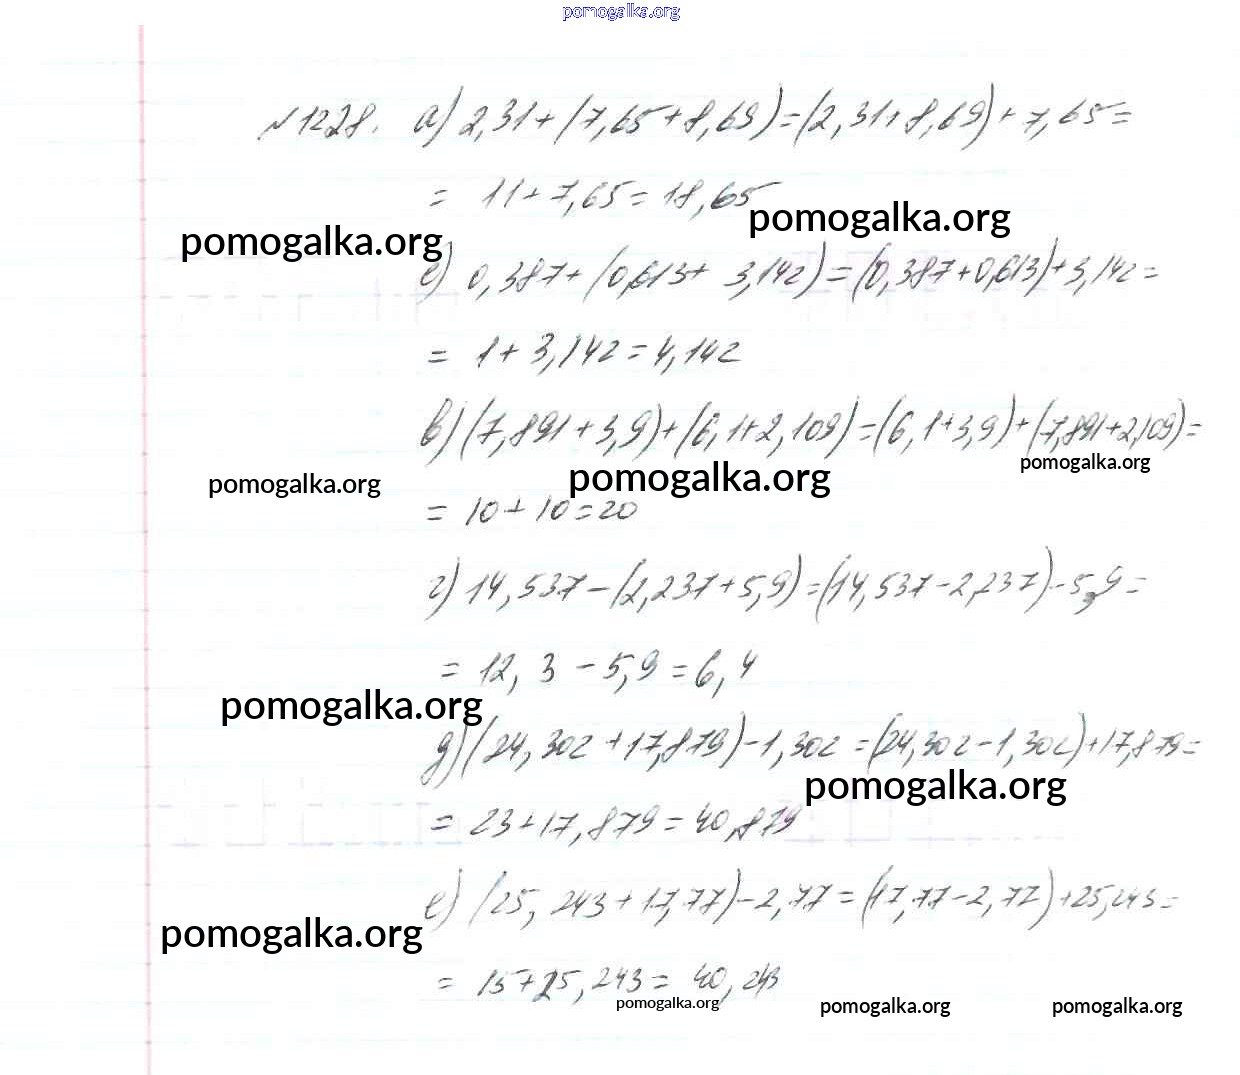 pomogalka.org
№1228. а) 2,31+(7,65+8,69)=(2,31+8,69)+7,65=
= 11+7,65=18,65
pomogalka.org
pomogalka.org
б) 0,387+(0,613+3,142)=(0,387+0,613)+3,142=
= 1+3,142=4,142
в) (7,891+3,9)+(6,1+2,109)=(6,1+3,9)+(7,891+2,109)=
pomogalka.org
pomogalka.org
pomogalka.org
= 10+10=20
г) 14,537-(2,237+5,9)=(14,537-2,237)-5,9=
= 12,3-5,9=6,4
pomogalka.org
д) (24,302+17,879)-1,302=(24,302-1,302)+17,879=
pomogalka.org
= 23+17,879=40,879
е) (25,243+17,77)-2,77=(17,77-2,77)+25,243=
pomogalka.org
= 15+25,243=40,243
pomogalka.org
pomogalka.org
pomogalka.org